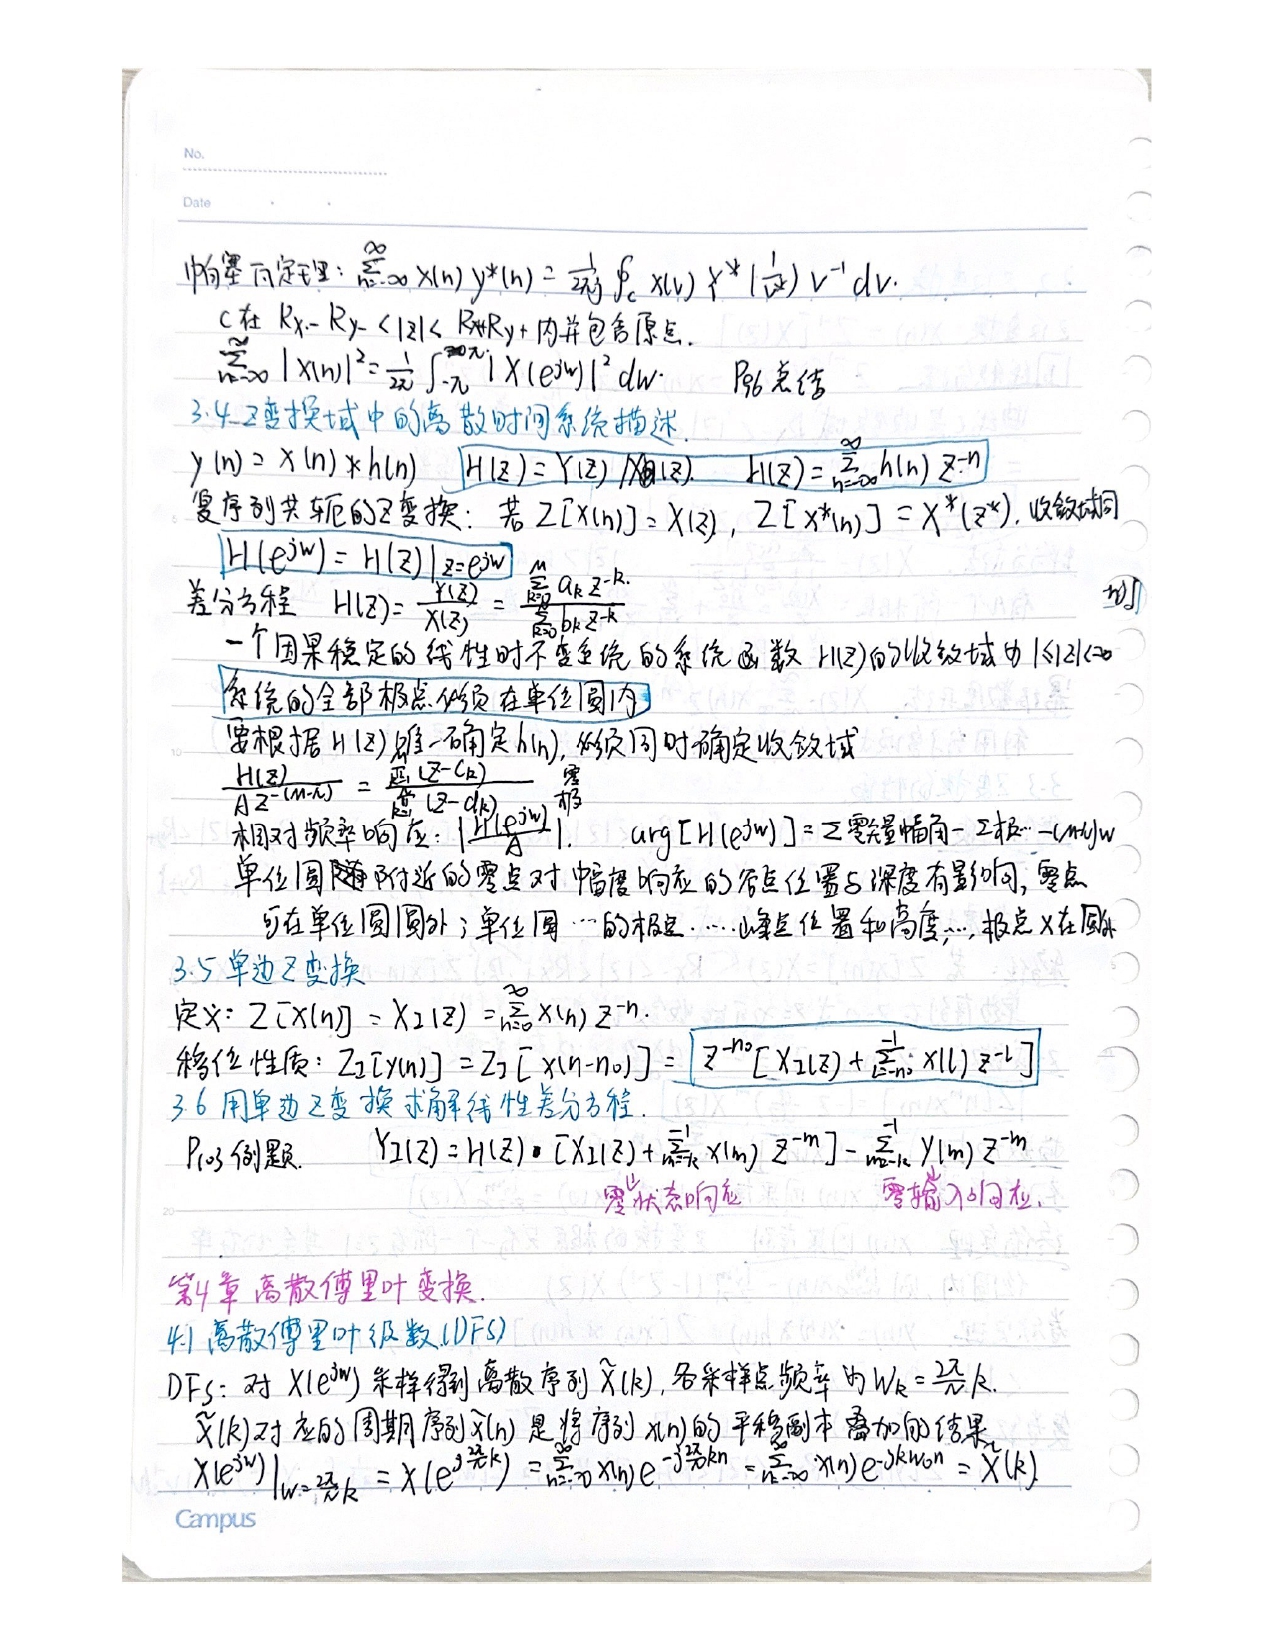 No.
Date
帕塞瓦定理: ∑_{n=-∞}^{∞} x(n) y*(n) = 1/(2πj) ∮_c X(v) Y*(1/v*) v^{-1} dv.
C在 Rx- Ry- < |z| < Rx+Ry+ 内并包含原点.
∑_{n=-∞}^{∞} |x(n)|² = 1/(2π) ∫_{-π}^{π} |X(e^{jw})|² dw. P96总结
3.4 Z变换域中的离散时间系统描述.
y(n) = x(n) * h(n) H(z) = Y(z) / X(z). H(z) = ∑_{n=-∞}^{∞} h(n) z^{-n}
复序列共轭的Z变换: 若 Z[x(n)] = X(z), Z[x*(n)] = X*(z*), 收敛域同
H(e^{jw}) = H(z)|z=e^{jw}
差分方程 H(z) = Y(z)/X(z) = ∑_{k=0}^{M} a_k z^{-k} / ∑_{k=0} b_k z^{-k}
一个因果稳定的线性时不变系统的系统函数 H(z)的收敛域为 1≤|z|<∞
系统的全部极点必须在单位圆内
要根据H(z)唯一确定h(n), 必须同时确定收敛域
H(z) / A z^{-(M-N)} = ∏(z-c_k) / ∏(z-d_k) 零 极
相对频率响应: |H(e^{jw})/A|. arg[H(e^{jw})] = ∑零矢量幅角 - ∑极… -(M-N)w
单位圆附近的零点对幅度响应的谷点位置与深度有影响, 零点
可在单位圆圆外; 单位圆…的极点……峰点位置和高度…, 极点x在圆外
3.5 单边Z变换
定义: Z[x(n)] = X_I(z) = ∑_{n=0}^{∞} x(n) z^{-n}.
移位性质: Z_I[y(n)] = Z_I[x(n-n₀)] = z^{-n₀}[X_I(z) + ∑_{l=-n₀}^{-1} x(l) z^{-l}]
3.6 用单边Z变换求解线性差分方程.
P103例题. Y_I(z) = H(z)·[X_I(z) + ∑_{m=-k}^{-1} x(m) z^{-m}] - ∑_{m=-k}^{-1} y(m) z^{-m}
零状态响应 零输入响应.
第4章 离散傅里叶变换.
4.1 离散傅里叶级数(DFS)
DFS: 对 X(e^{jw}) 采样得到离散序列 X̃(k), 各采样点频率为 W_k = 2π/N k.
X̃(k)对应的周期序列x̃(n)是将序列x(n)的平移副本叠加的结果
X(e^{jw})|w=2π/N k = X(e^{j2π/N k}) = ∑_{n=-∞}^{∞} x(n) e^{-j2π/N kn} = ∑_{n=-∞}^{∞} x(n) e^{-jkw₀n} = X̃(k)
Campus